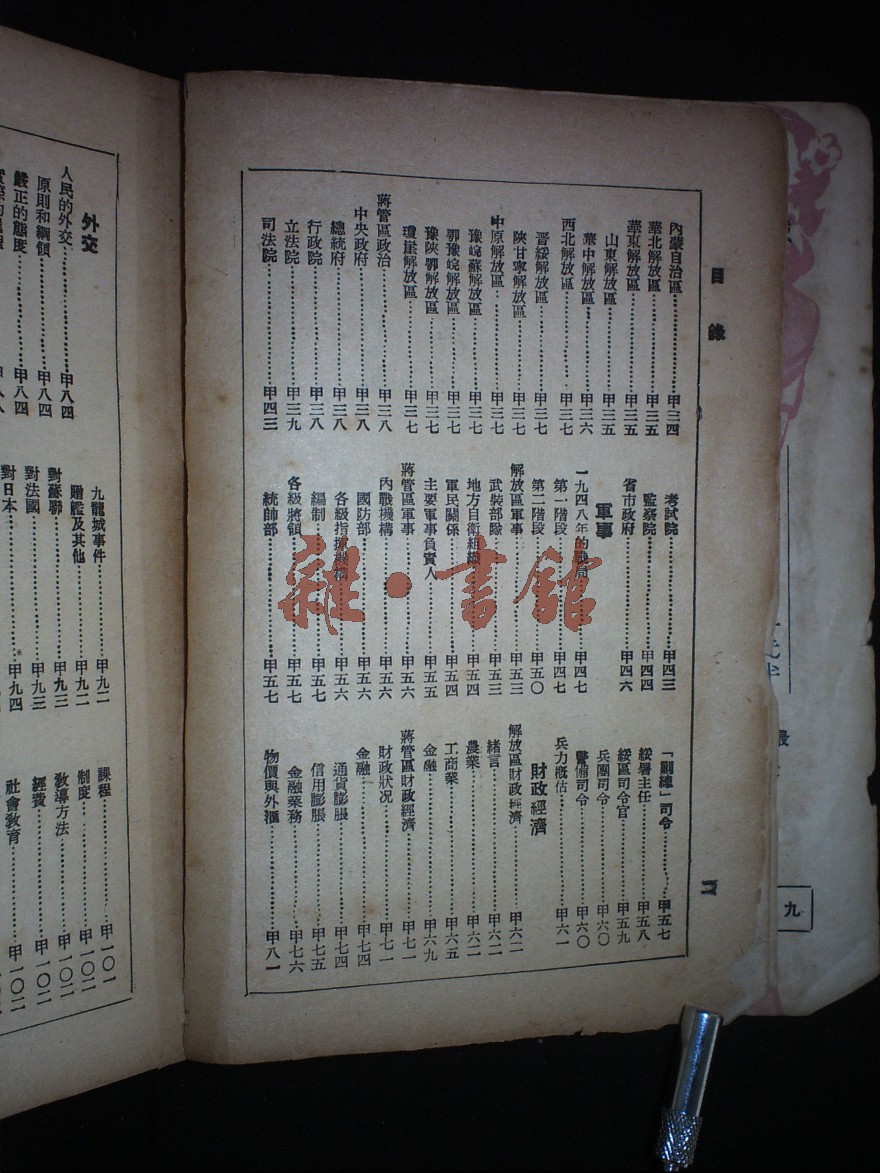 目錄
內蒙自治區……甲三四
華北解放區……甲三五
華東解放區……甲三五
山東解放區……甲三五
華中解放區……甲三六
西北解放區……甲三七
晉綏解放區……甲三七
陝甘寧解放區……甲三七
中原解放區……甲三七
豫皖蘇解放區……甲三七
鄂豫皖解放區……甲三七
豫陝鄂解放區……甲三七
瓊崖解放區……甲三七
蔣管區政治……甲三八
中央政府……甲三八
總統府……甲三八
行政院……甲三八
立法院……甲三九
司法院……甲四三
考試院……甲四三
監察院……甲四四
省市政府……甲四六
軍事
一九四八年的戰局……甲四七
第一階段……甲四七
第二階段……甲五〇
解放區軍事……甲五三
武裝部隊……甲五三
地方自衛組織……甲五四
軍民關係……甲五四
主要軍事負責人……甲五五
蔣管區軍事……甲五六
內戰機構……甲五六
國防部……甲五六
各級指揮機構……甲五六
編制……甲五七
各級將領……甲五七
統帥部……甲五七
「剿總」司令……甲五七
綏署主任……甲五八
綏區司令官……甲五九
兵團司令……甲六〇
警備司令……甲六〇
兵力概估……甲六一
財政經濟
解放區財政經濟……甲六二
緒言……甲六二
農業……甲六二
工商業……甲六五
金融……甲六九
蔣管區財政經濟……甲七一
財政狀况……甲七一
金融……甲七四
通貨膨脹……甲七四
信用膨脹……甲七五
金融業務……甲七六
物價與外滙……甲八一
二
外交
人民的外交……甲八四
原則和綱領……甲八四
嚴正的態度……甲八四
九龍城事件……甲九二
贈艦及其他……甲九二
對蘇聯……甲九三
對法國……甲九三
對日本……甲九四
課程……甲一〇一
制度……甲一〇二
教導方法……甲一〇二
經費……甲一〇二
社會教育……甲一〇二
九
雜·書館